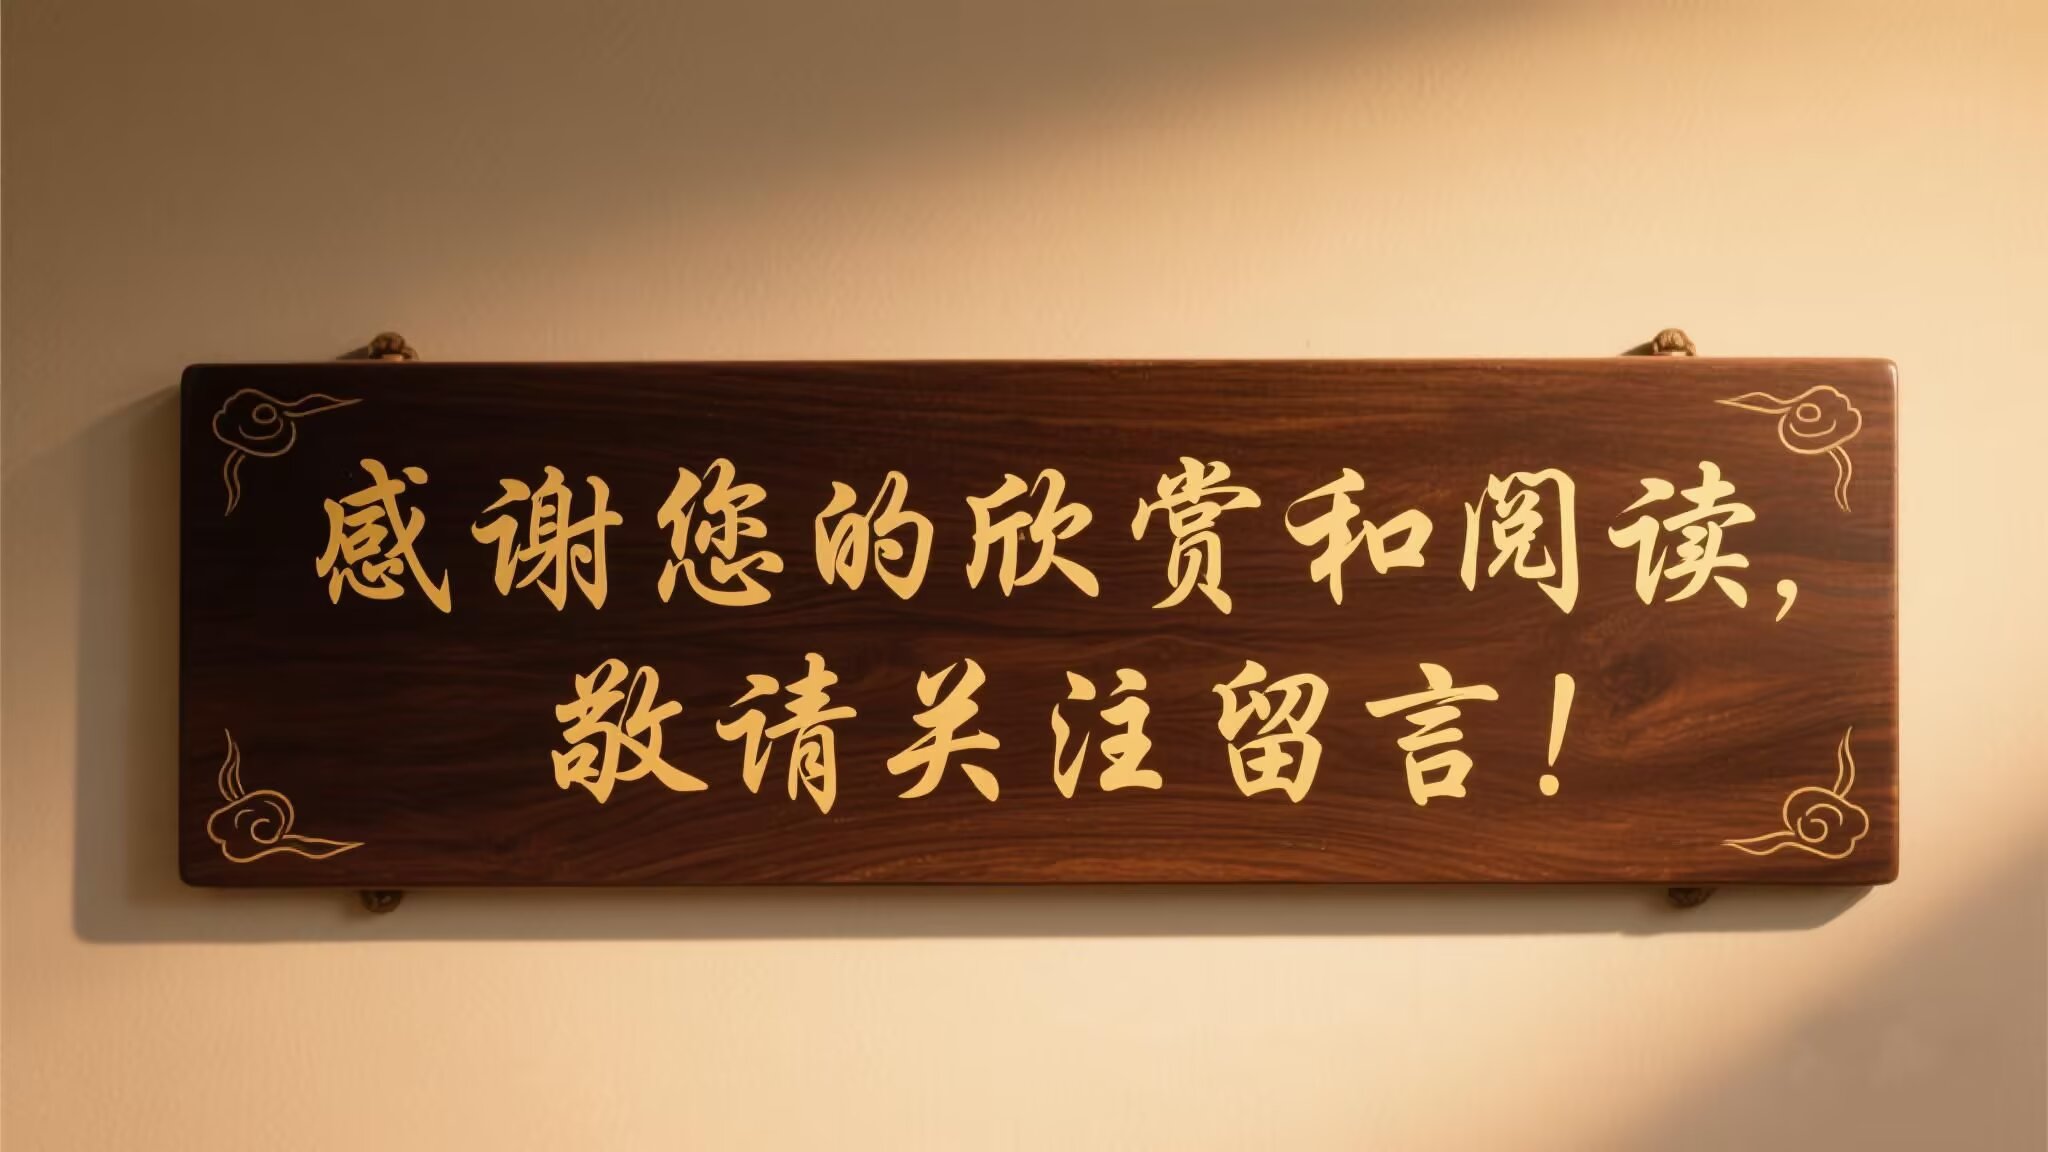 感谢您的欣赏和阅读，
敬请关注留言！